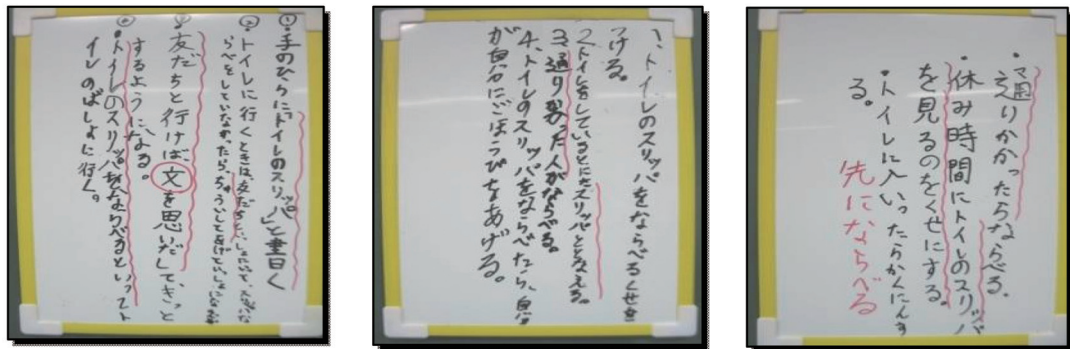 ①・手のひらに「トイレのスリッパ」と書く
②・トイレに行くときは、友だちといっしょにいって、
らべをしていなかったら、ちゅういしてあげて
③友だちと行けば、文を思いだして、きっと
するようになる。
④・トイレのスリッパをならべるといってト
イレのばしょに行く。
1、トイレのスリッパをならべるくせを
つける。
2、トイレをしているときにスリッパととなえる。
3、通りかかった人がならべる。
4、トイレのスリッパをならべたら、自
が自分にごほうびをあげる。
・通りかかったらならべる。
・休み時間にトイレのスリッパ
を見るのをくせにする。
・トイレに入いったらかくにんす
る。
先にならべる